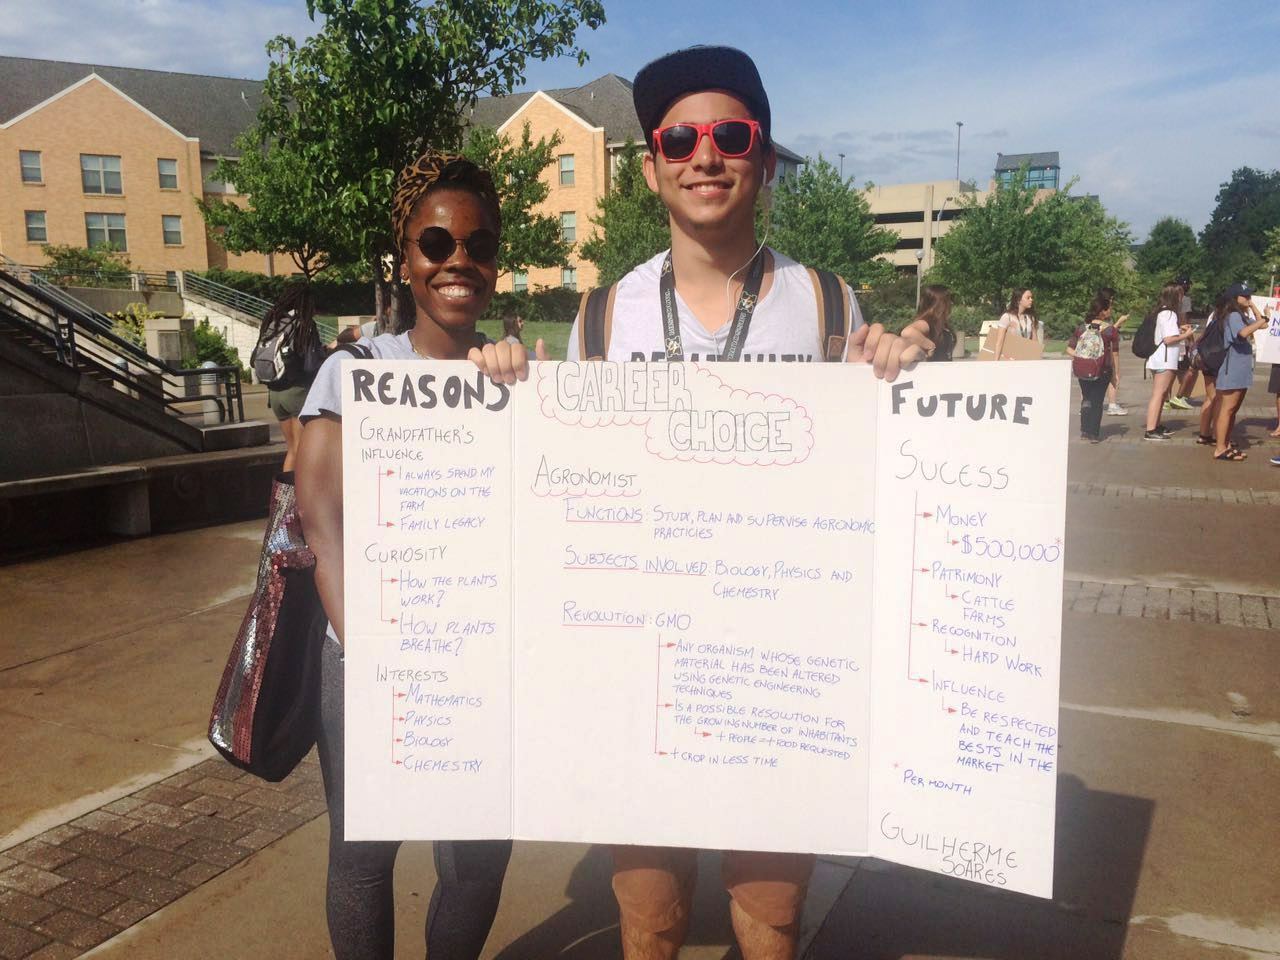 REASONS
GRANDFATHER'S
INFLUENCE
I ALWAYS SPEND MY
VACATIONS ON THE
FARM
FAMILY LEGACY
CURIOSITY
HOW THE PLANTS
WORK?
HOW PLANTS
BREATHE?
INTERESTS
MATHEMATICS
PHYSICS
BIOLOGY
CHEMESTRY
CAREER
CHOICE
AGRONOMIST
FUNCTIONS: STUDY, PLAN AND SUPERVISE AGRONOMIC
PRACTICIES
SUBJECTS INVOLVED: BIOLOGY, PHYSICS AND
CHEMESTRY
REVOLUTION: GMO
ANY ORGANISM WHOSE GENETIC
MATERIAL HAS BEEN ALTERED
USING GENETIC ENGINEERING
TECHNIQUES
IS A POSSIBLE RESOLUTION FOR
THE GROWING NUMBER OF INHABITANTS
+ PEOPLE = + FOOD REQUESTED
+ CROP IN LESS TIME
FUTURE
SUCESS
MONEY
$500,000*
PATRIMONY
CATTLE
FARMS
RECOGNITION
HARD WORK
INFLUENCE
BE RESPECTED
AND TEACH THE
BESTS IN THE
MARKET
* PER MONTH
GUILHERME
SOARES